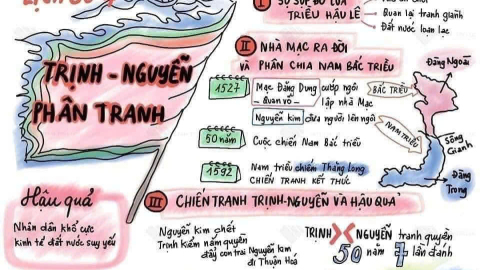 LỊCH SỬ
TRỊNH - NGUYỄN
PHÂN TRANH
I SỰ SỤP ĐỔ CỦA
TRIỀU HẬU LÊ
Quan lại tranh giành
Đất nước loạn lạc
II NHÀ MẠC RA ĐỜI
VÀ PHÂN CHIA NAM BẮC TRIỀU
1527
Mạc Đăng Dung cướp ngôi
Quan võ lập nhà Mạc
Nguyễn Kim đưa người lên ngôi
50 năm
Cuộc chiến Nam Bắc triều
1592
Nam triều chiếm Thăng Long
CHIẾN TRANH KẾT THÚC
Đàng Ngoài
BẮC TRIỀU
NAM TRIỀU
Sông
Gianh
Đàng
Trong
III CHIẾN TRANH TRỊNH-NGUYỄN VÀ HẬU QUẢ
Nguyễn Kim chết
Trịnh Kiểm nắm quyền
đẩy con trai Nguyễn Kim
đi Thuận Hoá
TRỊNH NGUYỄN tranh quyền
50 năm 7 lần đánh
Hậu quả
Nhân dân khổ cực
kinh tế đất nước suy yếu